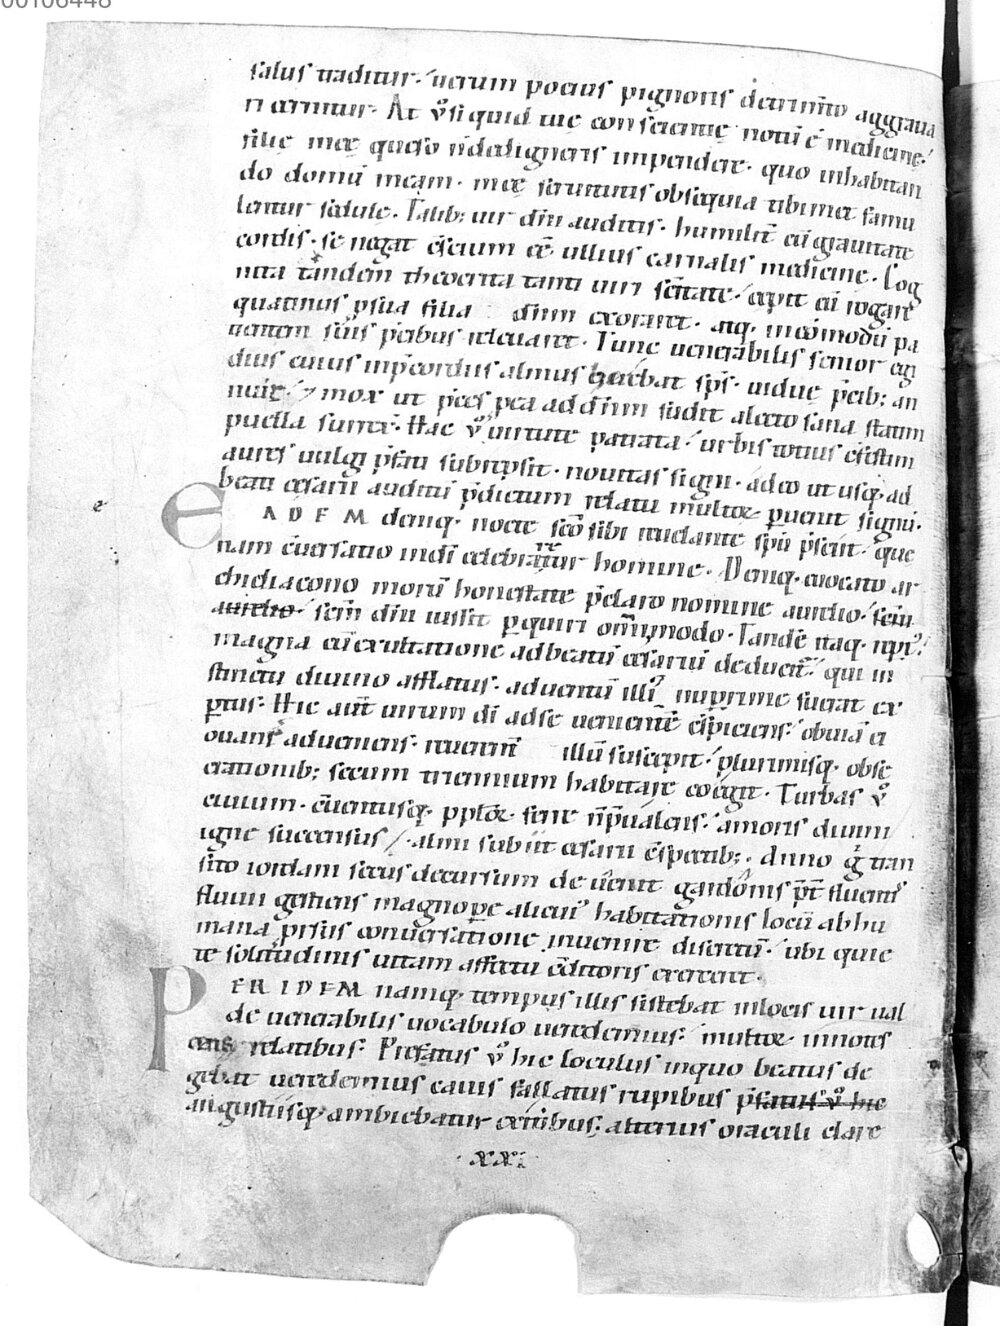 00106448
salus traditur. uerum pocius pignoris detrim̅to aggraua
ri arritur. At ů si quid tue conscientie notū ē medicine,
filie meę queso n̄ dedigneris impendere. quo inhabitan
do domū meam. meę seruitutis obsequia tibimet famu
lentur sedule. Talib; uir dn̅i auditis. humilit̄ cū grauitate
cordis. se negat ēscium eē ullius carnalis medicine. Cog
nita tandem theoerita tanti uiri sc̅itate. cepit eū rogare
quatinus p sua filia dn̅m exoraret. atq. incōmodū pa
tientem suis p̄cibus releuaret. Tunc uenerabilis senior egi
dius cuius in p̄cordiis almus habebat sp̅s. uidue p̄cib; an
nuit. ⁊ mox ut p̄ces p ea ad dn̅m fudit a lecto sana statim
puella surrex̄. Hac ů uirtute patrata. urbis totius ēfestim
aures uulgi p̄sati subrepsit. nouitas signi. adeo ut usq. ad
beati cesarii auditū p̄dictum relatu multoꝝ peruenit signū.
EADEM deniq. nocte sc̅o sibi reuelante sp̅u p̄sciit. que
nam ēuersatio in dī celebraretur homine. Deniq. euocato ar
chidiacono morū honestate p̄claro nomine aurelio. senem
aurelio. senē dn̅i iussit perquiri om̅imodo. Tandē itaq. rep̄t;
magna cū exultatione ad beatū cesariū deducit̄. qui in
stinctu diuino afflatus. aduentū illi; nuprime fuerat ex
pertus. Hic aut̄ uirum dī ad se uenientē ēspiciens. obuiā ei
ouans adueniens. reuerent̄ illū suscepit. plurimisq. obse
crationib; secum triennium habitare coegit. Turbas ů
ciuium. ēuentusq. pploꝝ. ferre n̄ p̄ualens. amoris diuini
igne succensus. almi subiit cesarii ēspectib;. Anno ġ tran
sito iordam secus decursum deuenit gardonis p̄t fluent;
fluuii gestiens magnopere alicui; habitationis locū ab hu
mana prius conuersatione inuenire disertū. ubi quie
te solitudinis uitam affectu ēditoris exereret.
PERIDEM namq. tempus illis sistebat in locis uir ual
de uenerabilis uocabulo ueredemius. multoꝝ innotes
cens relatibus. Prefatus ů hic loculus in quo beatus de
gebat ueredemius cauis fallatus rupibus p̄fatus ů hic
angustiisq. ambiebatur exitibus. alterius oraculi clare
.xxi.